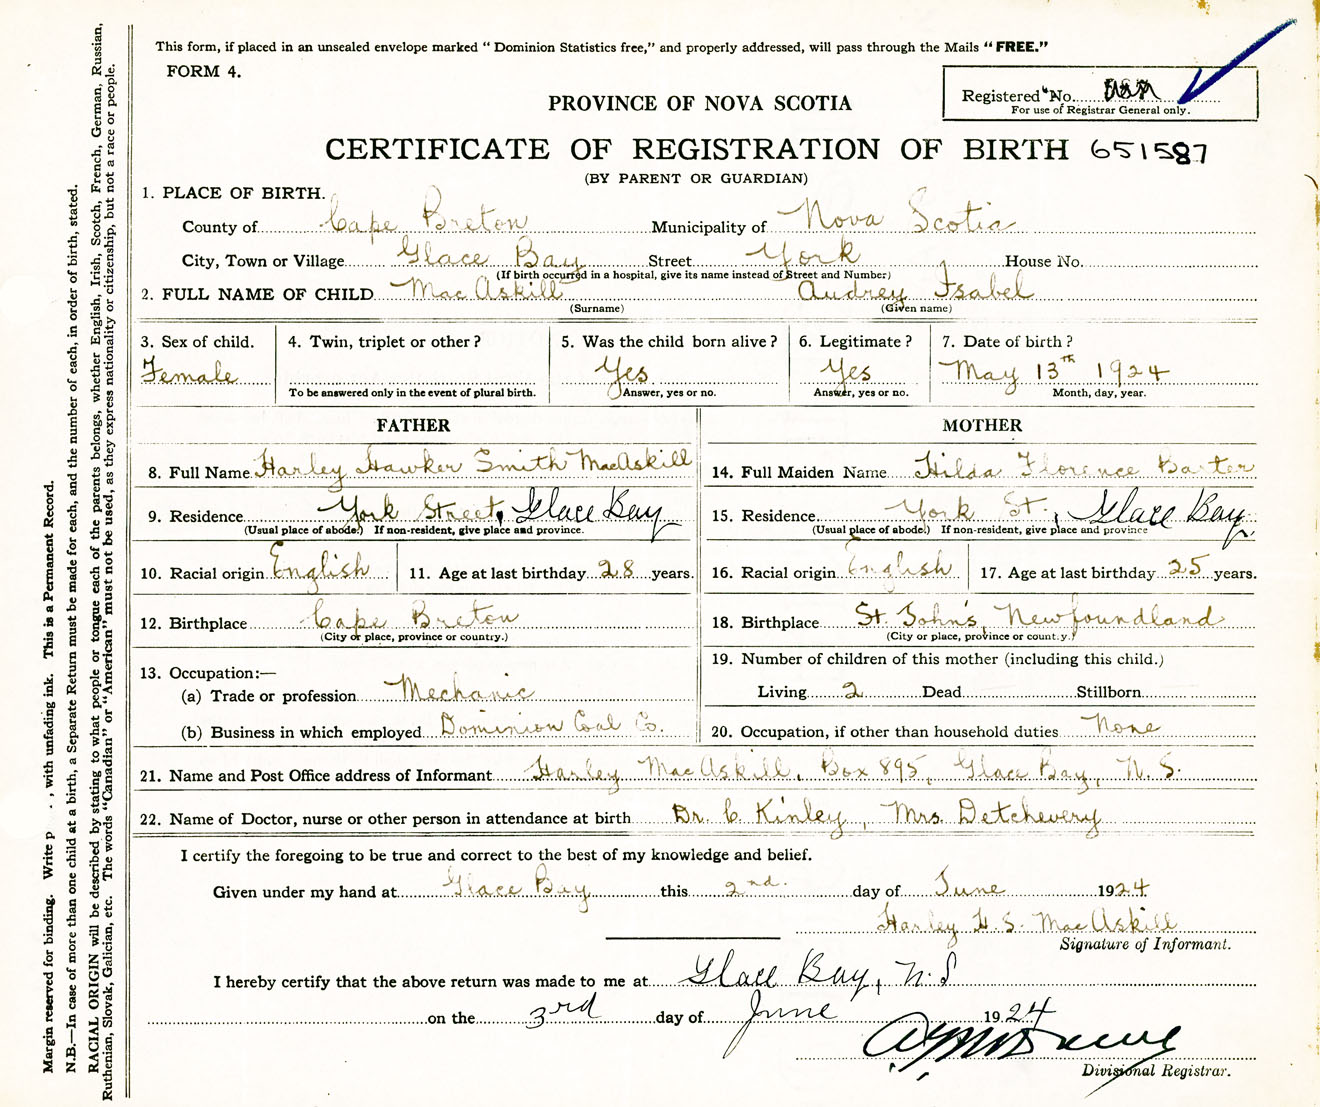 This form, if placed in an unsealed envelope marked "Dominion Statistics free," and properly addressed, will pass through the Mails "FREE."
FORM 4.
Registered No.
For use of Registrar General only.
PROVINCE OF NOVA SCOTIA
CERTIFICATE OF REGISTRATION OF BIRTH 651587
(BY PARENT OR GUARDIAN)
1. PLACE OF BIRTH.
County of Cape Breton Municipality of Nova Scotia
City, Town or Village Glace Bay Street York House No.
(If birth occurred in a hospital, give its name instead of Street and Number)
2. FULL NAME OF CHILD MacAskill Audrey Isabel
(Surname) (Given name)
3. Sex of child. 4. Twin, triplet or other? 5. Was the child born alive? 6. Legitimate? 7. Date of birth?
Female Yes Yes May 13th 1924
To be answered only in the event of plural birth. Answer, yes or no. Answer, yes or no. Month, day, year.
FATHER MOTHER
8. Full Name Harley Hawker Smith MacAskill 14. Full Maiden Name Hilda Florence Baxter
9. Residence York Street, Glace Bay 15. Residence York St., Glace Bay.
(Usual place of abode.) If non-resident, give place and province. (Usual place of abode.) If non-resident, give place and province
10. Racial origin English 11. Age at last birthday 28 years. 16. Racial origin English 17. Age at last birthday 25 years.
12. Birthplace Cape Breton 18. Birthplace St. John's, Newfoundland
(City or place, province or country.) (City or place, province or country.)
13. Occupation:— 19. Number of children of this mother (including this child.)
(a) Trade or profession Mechanic Living 2 Dead Stillborn
(b) Business in which employed Dominion Coal Co. 20. Occupation, if other than household duties None
21. Name and Post Office address of Informant Harley MacAskill, Box 895, Glace Bay, N. S.
22. Name of Doctor, nurse or other person in attendance at birth Dr. C Kinley, Mrs. Detchevery
I certify the foregoing to be true and correct to the best of my knowledge and belief.
Given under my hand at Glace Bay this 2nd. day of June 1924
Harley H. S. MacAskill
Signature of Informant.
I hereby certify that the above return was made to me at Glace Bay, N. S
on the 3rd day of June 1924
Divisional Registrar.
Margin reserved for binding. Write p , with unfading ink. This is a Permanent Record.
N.B.—In case of more than one child at a birth, a Separate Return must be made for each, and the number of each, in order of birth, stated.
RACIAL ORIGIN will be described by stating to what people or tongue each of the parents belongs, whether English, Irish, Scotch, French, German, Russian,
Ruthenian, Slovak, Galician, etc. The words "Canadian" or "American" must not be used, as they express nationality or citizenship, but not a race or people.